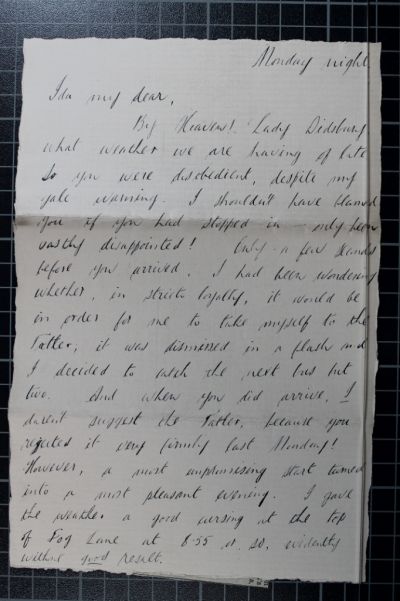 Monday night
Ida my dear,
By Heavens! Lady Didsbury
what weather we are having of late
So you were disobedient, despite my
gale warning. I shouldn't have blamed
you if you had stopped in – only been
vastly disappointed! Only a few seconds
before you arrived, I had been wondering
whether, in strict loyalty, it would be
in order for me to take myself to the
Tatler, it was dismissed in a flash and
I decided to watch the next bus but
two. And when you did arrive, I
daren't suggest the Tatler, because you
rejected it very firmly last Monday!
However, a most unpromising start turned
into a most pleasant evening. I gave
the weather a good cursing at the top
of Fog Lane at 6.55 or so, evidently
with good result.